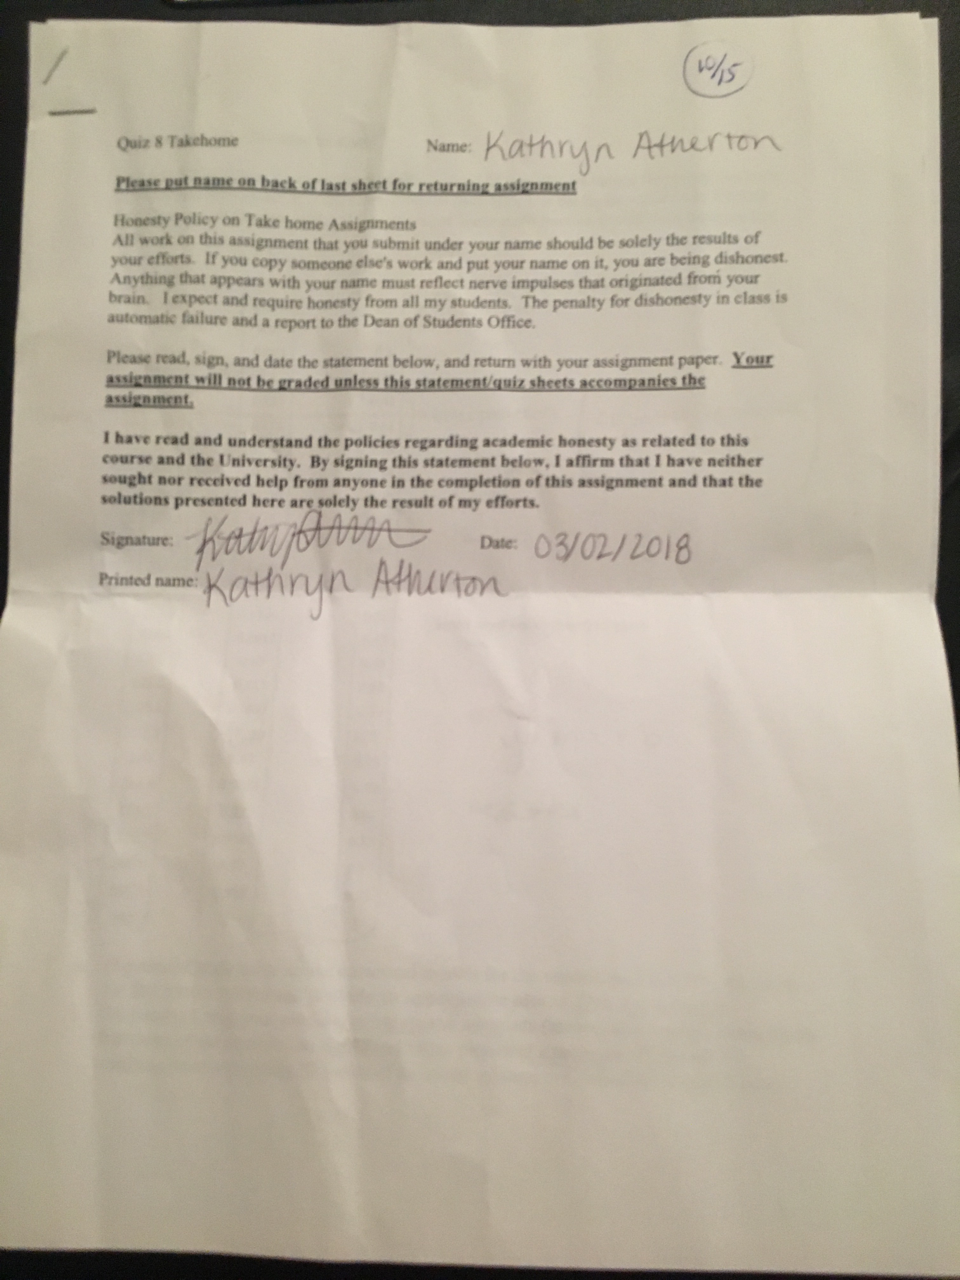 10/15
Quiz 8 Takehome Name: Kathryn Atherton
Please put name on back of last sheet for returning assignment
Honesty Policy on Take home Assignments
All work on this assignment that you submit under your name should be solely the results of
your efforts. If you copy someone else's work and put your name on it, you are being dishonest.
Anything that appears with your name must reflect nerve impulses that originated from your
brain. I expect and require honesty from all my students. The penalty for dishonesty in class is
automatic failure and a report to the Dean of Students Office.
Please read, sign, and date the statement below, and return with your assignment paper. Your
assignment will not be graded unless this statement/quiz sheets accompanies the
assignment.
I have read and understand the policies regarding academic honesty as related to this
course and the University. By signing this statement below, I affirm that I have neither
sought nor received help from anyone in the completion of this assignment and that the
solutions presented here are solely the result of my efforts.
Signature: Date: 03/02/2018
Printed name: Kathryn Atherton